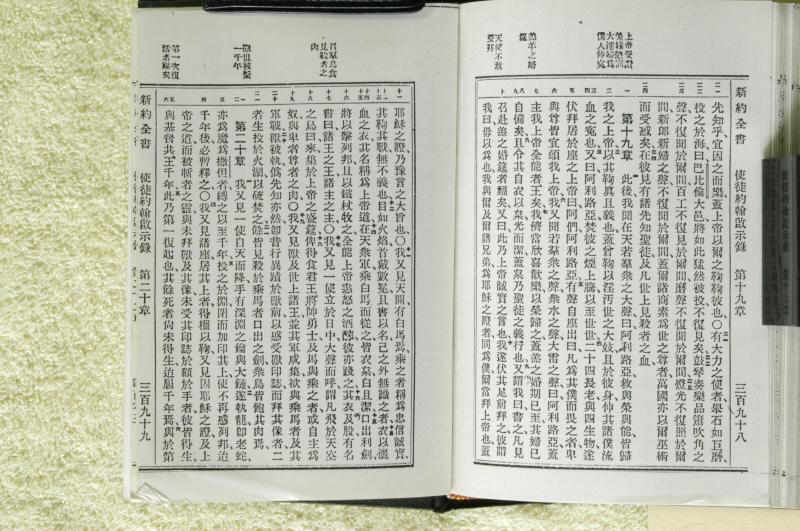 新約全書
使徒約翰啟示錄
第十九章
三百九十八
上帝受讚
美緣懲罰
大淫婦為
僕人伸寃
羔羊之婚
筵
天使不敢
受拜
先知乎宜因之而樂蓋上帝以爾之鞫鞫彼也〇有大力之使者舉石如巨磨
投之於海曰巴比倫大邑將如此猛然被投不復見矣鼓琴奏樂品簫吹角之
聲不復聞於爾間百工不復見於爾間磨聲不復聞於爾間燈光不復照於爾
間新郎新婦之聲不復聞於爾間蓋爾諸商素為世之尊者萬國亦以爾巫術
而受惑矣在彼見有諸先知聖徒及凡世上見殺者之血
第十九章 此後我聞在天若羣衆之大聲曰阿利路亞救與榮與能皆歸
我之上帝以其鞫真且義也蓋曾鞫以淫汚世之大妓且於彼身伸其諸僕流
血之寃也又曰阿利路亞焚彼之烟上騰以至世世二十四長老與四生物遂
伏拜居於座之上帝曰阿們阿利路亞有聲自座出曰凡為其僕而畏之者卑
與尊皆宜頌我上帝我又聞若羣衆之聲衆水之聲大雷之聲曰阿利路亞蓋
主我上帝全能者王矣我儕當欣喜歡樂以榮歸之蓋羔之婚期已至其婦已
自備矣且令其自衣以枲光而潔蓋枲乃聖徒之義行也又謂我曰書之凡見
召赴羔之婚筵者福矣又曰此乃上帝誠實之言也我遂伏其足前拜之彼謂
我曰毋以為也我與爾及爾諸兄弟為耶穌之證者同為僕爾當拜上帝也蓋
新約全書
第二十章
三百九十九
召眾鳥食
見殺者之
肉
獸祖被繫
一千年
第一次復
活者福矣
耶穌之證乃豫言之大旨也〇我又見天開有白馬焉乘之者稱為忠信誠實
其鞫其戰無不義也目如火焰首戴數冕且書以名己之外無識之者衣以灑
血之衣其名稱為上帝道在天衆軍乘白馬而從之皆衣枲白且潔口出利劍
將以擊列邦且以鐵杖牧之全能上帝恚怒之酒醡彼亦踐之其衣及股有名
書曰諸王之王諸主之主〇我又見一使立於日中大聲而呼謂凡飛於天空
之鳥曰來集於上帝之盛筵俾得食君王將帥勇士及馬與乘之者或自主為
奴與卑者尊者之肉〇我又見獸及世上諸王並其軍咸集欲與乘馬者及其
軍戰獸被執偽先知亦然卽昔行異蹟於獸前以惑受獸印誌而拜其像者二
者生投於火湖以硫焚之餘皆見殺於乘馬者口出之劍衆鳥皆飽其肉焉
第二十章 我又見一使自天而降手有深淵之鑰與大鏈遂執龍卽老蛇
亦為魔為撒但者縛之以至千年投之於淵閉而加印其上使不再惑列邦迨
千年後必暫釋之〇我又見諸座居其上者得權以鞫又見因耶穌之證及上
帝之道而被斬者之靈與未拜獸及其像未受其印誌於額於手者彼皆得生
與基督共王千年此乃第一復起也其餘死者尙未得生迨屆千年焉與於第